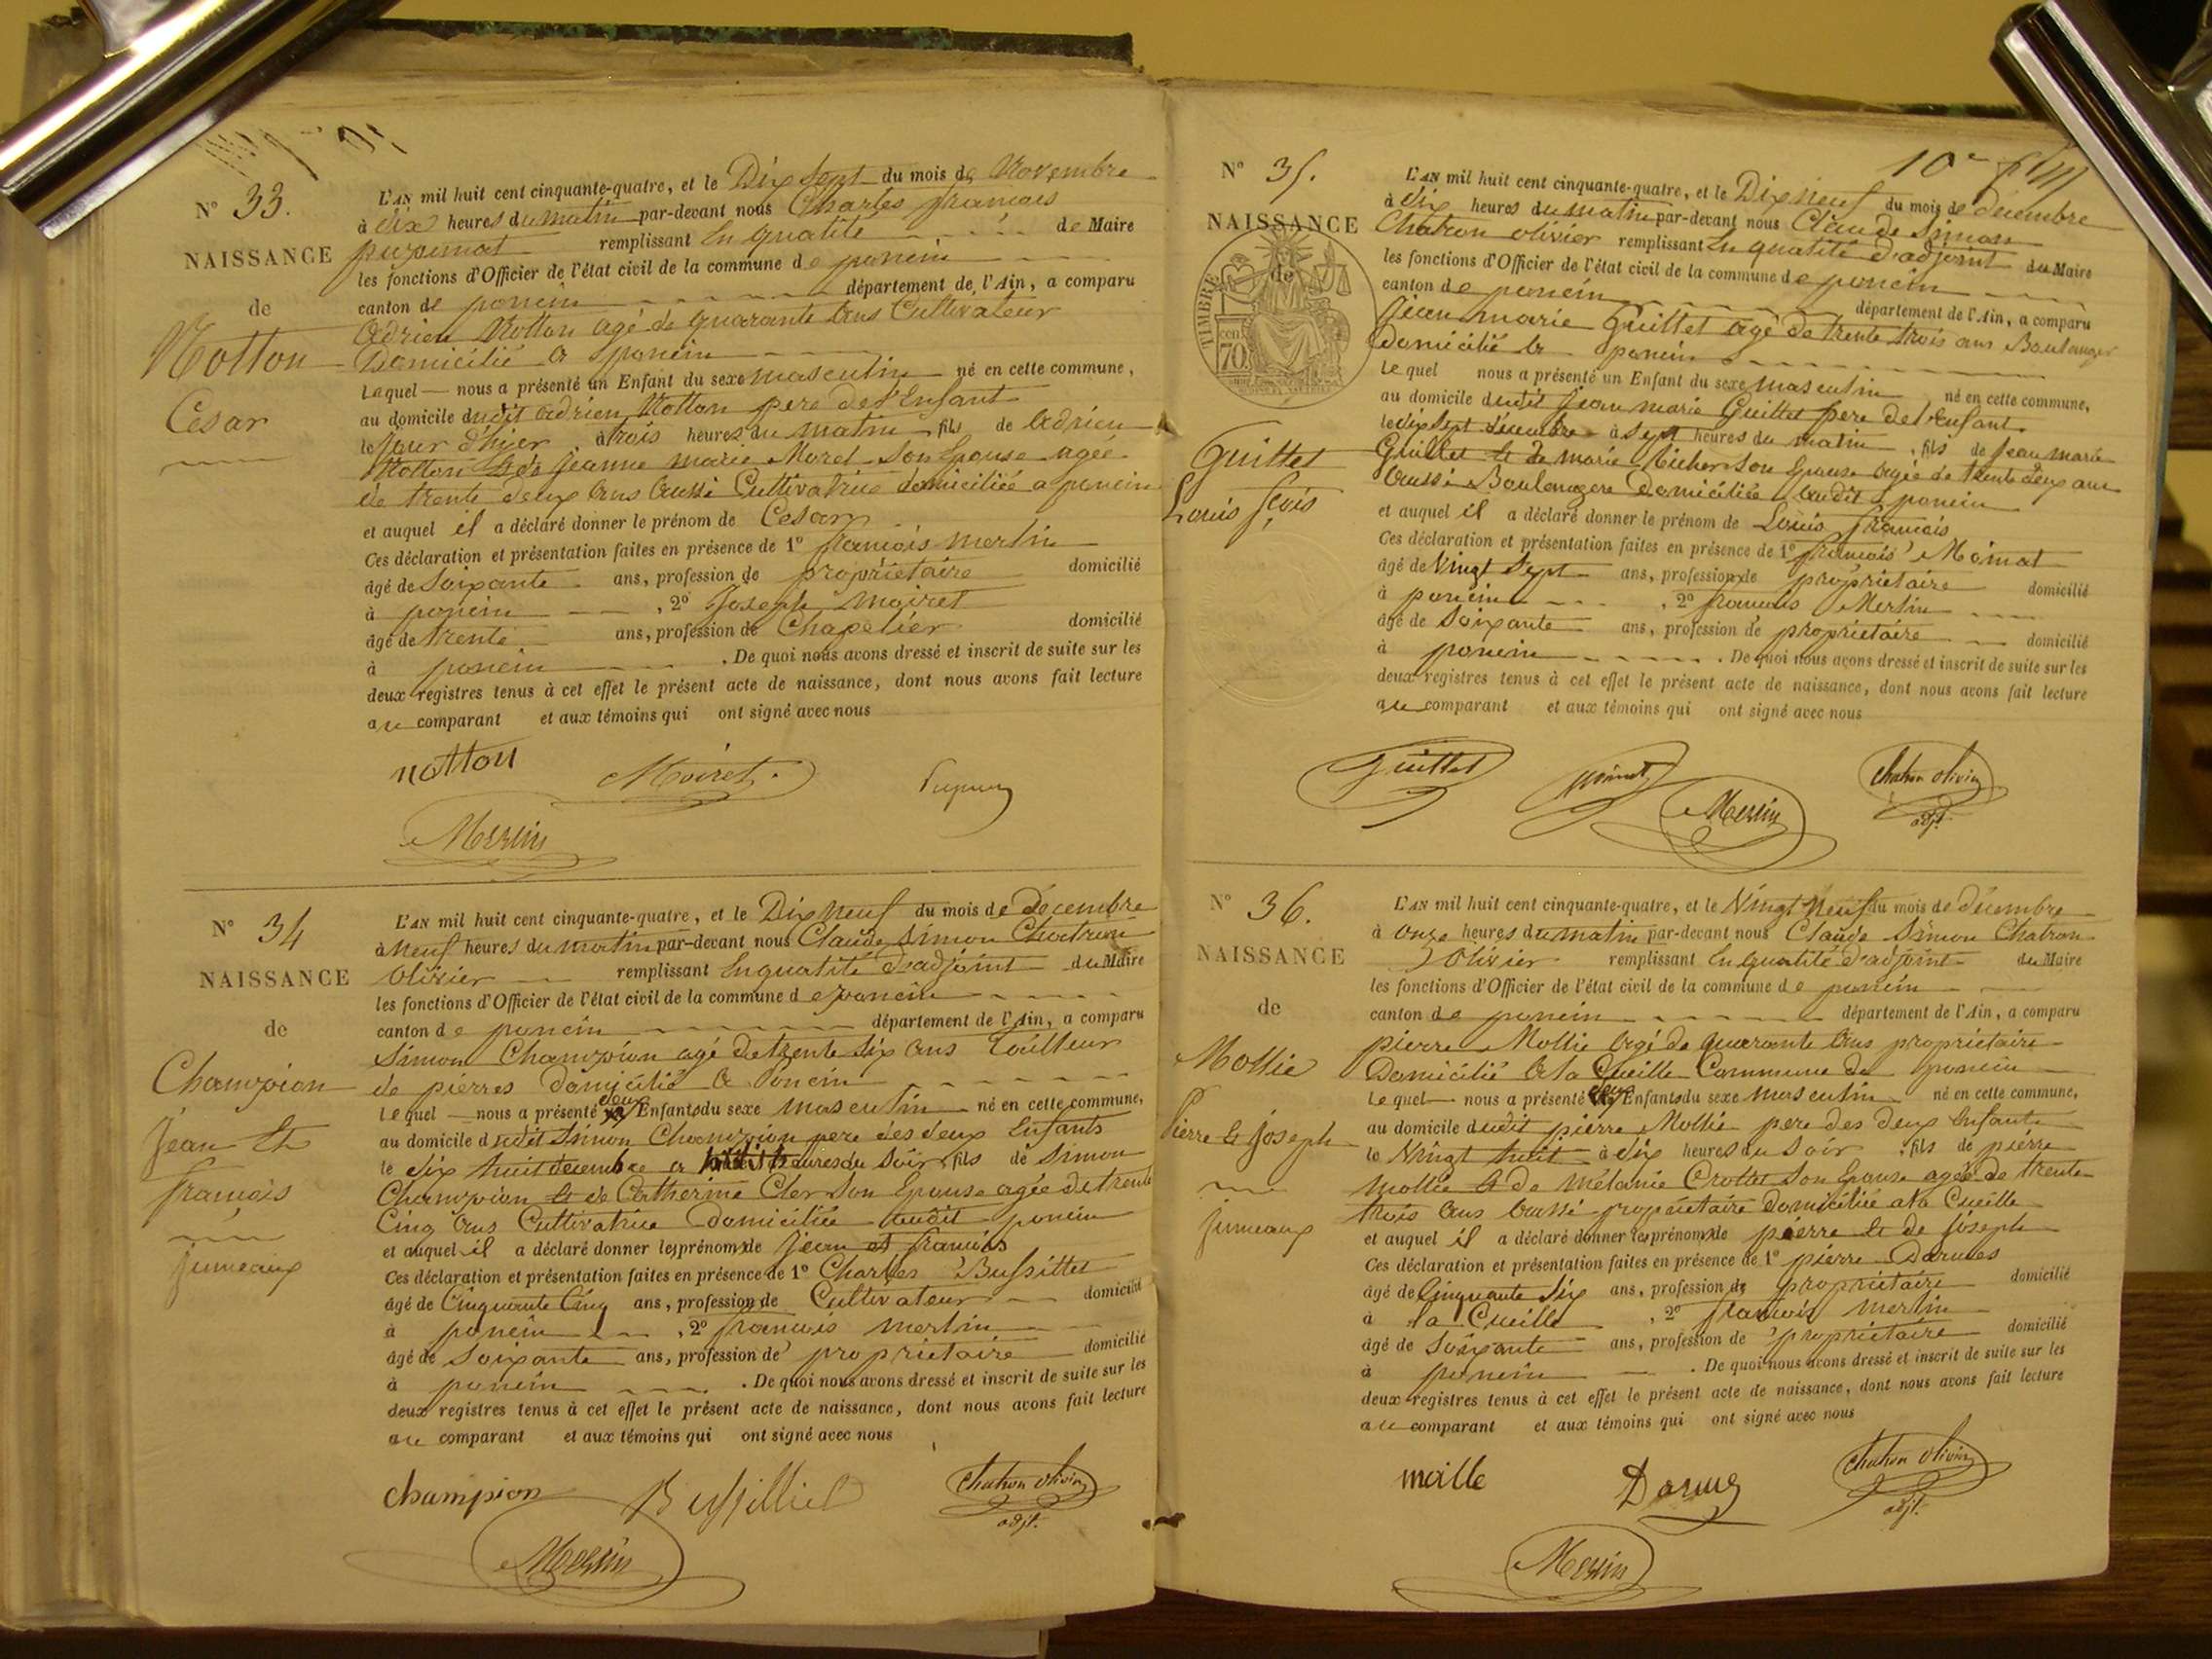 N° 33.
NAISSANCE
de
Notton
Cesar
L'AN mil huit cent cinquante-quatre, et le Dix Sept du mois de Novembre
à dix heures du matin par-devant nous Charles francois
remplissant En qualité de Maire
les fonctions d'Officier de l'état civil de la commune de poncin
canton de poncin département de l'Ain, a comparu
Adrien Notton agé de quarante Ans Cultivateur
Domicilié a poncin
Lequel nous a présenté un Enfant du sexe masculin né en cette commune,
au domicile dudit adrien Notton pere de l'Enfant
le jour d'hier à trois heures du matin fils de Adrien
Notton Et de Jeanne marie Morel Son Epouse agée
de trente deux Ans Aussi Cultivatrice domiciliée a poncin
et auquel il a déclaré donner le prénom de Cesar
Ces déclaration et présentation faites en présence de 1° francois merlin
âgé de Soixante ans, profession de propriétaire domicilié
à poncin , 2° Joseph moiret
âgé de trente ans, profession de Chapelier domicilié
à poncin . De quoi nous avons dressé et inscrit de suite sur les
deux registres tenus à cet effet le présent acte de naissance, dont nous avons fait lecture
au comparant et aux témoins qui ont signé avec nous
notton
Moiret
Merlin
N° 34
NAISSANCE
de
Champion
Jean Et
francois
Jumeaux
L'AN mil huit cent cinquante-quatre, et le Dix Neuf du mois de Décembre
à Neuf heures du matin par-devant nous Claude Simon Chatron
Olivier remplissant En qualité d'adjoint du Maire
les fonctions d'Officier de l'état civil de la commune de poncin
canton de poncin département de l'Ain, a comparu
Simon Champion agé de trente Six Ans Tailleur
de pierres domicilié a Poncin
Lequel nous a présenté deux Enfants du sexe masculin né en cette commune,
au domicile dudit Simon Champion pere des deux Enfants
le dix huit décembre a heures du Soir fils de Simon
Champion Et de Catherine Cler Son Epouse agée de trente
Cinq Ans Cultivatrice domiciliée audit poncin
et auquel il a déclaré donner les prénoms de Jean et francois
Ces déclaration et présentation faites en présence de 1° Charles Bussillet
âgé de Cinquante Cinq ans, profession de Cultivateur domicilié
à poncin , 2° francois merlin
âgé de Soixante ans, profession de propriétaire domicilié
à poncin . De quoi nous avons dressé et inscrit de suite sur les
deux registres tenus à cet effet le présent acte de naissance, dont nous avons fait lecture
au comparant et aux témoins qui ont signé avec nous
champion
Bussilliet
Chatron Olivier
adjt.
Merlin
N° 35.
NAISSANCE
de
TIMBRE
70
Guillet
Louis fçois
L'AN mil huit cent cinquante-quatre, et le Dix Neuf du mois de décembre
à dix heures du matin par-devant nous Claude Simon
Chatron olivier remplissant En qualité d'adjoint du Maire
les fonctions d'Officier de l'état civil de la commune de poncin
canton de poncin département de l'Ain, a comparu
Jean marie Guillet agé de trente trois ans Boulanger
Domicilié a poncin
Lequel nous a présenté un Enfant du sexe masculin né en cette commune,
au domicile dudit Jean marie Guillet pere de l'enfant
le dix Sept décembre à Sept heures du matin , fils de Jean marie
Guillet Et de marie Son Epouse agée de trente deux ans
Aussi Boulangere Domiciliée audit poncin
et auquel il a déclaré donner le prénom de Louis francois
Ces déclaration et présentation faites en présence de 1° francois Moinat
âgé de Vingt Sept ans, profession de propriétaire domicilié
à poncin , 2° francois Merlin
âgé de Soixante ans, profession de propriétaire domicilié
à poncin . De quoi nous avons dressé et inscrit de suite sur les
deux registres tenus à cet effet le présent acte de naissance, dont nous avons fait lecture
au comparant et aux témoins qui ont signé avec nous
Guillet
Merlin
Chatron Olivier
adjt.
N° 36.
NAISSANCE
de
Mollie
Pierre Et Joseph
Jumeaux
L'AN mil huit cent cinquante-quatre, et le Vingt Neuf du mois de décembre
à Onze heures du matin par-devant nous Claude Simon Chatron
Olivier remplissant En qualité d'adjoint du Maire
les fonctions d'Officier de l'état civil de la commune de poncin
canton de poncin département de l'Ain, a comparu
pierre Mollie Agé de quarante Ans propriétaire
Domicilié a la Cueille Commune de poncin
Lequel nous a présenté deux Enfants du sexe masculin né en cette commune,
au domicile dudit pierre Mollie pere des deux Enfants
le Vingt huit à dix heures du Soir , fils de pierre
mollie Et de Mélanie Crottet Son Epouse agée de trente
trois Ans Aussi propriétaire Domiciliée a la Cueille
et auquel il a déclaré donner les prénoms de pierre Et de Joseph
Ces déclaration et présentation faites en présence de 1° pierre Darmes
âgé de Cinquante Six ans, profession de propriétaire domicilié
à la Cueille , 2° francois merlin
âgé de Soixante ans, profession de propriétaire domicilié
à poncin . De quoi nous avons dressé et inscrit de suite sur les
deux registres tenus à cet effet le présent acte de naissance, dont nous avons fait lecture
au comparant et aux témoins qui ont signé avec nous
Chatron Olivier
adjt.
Merlin